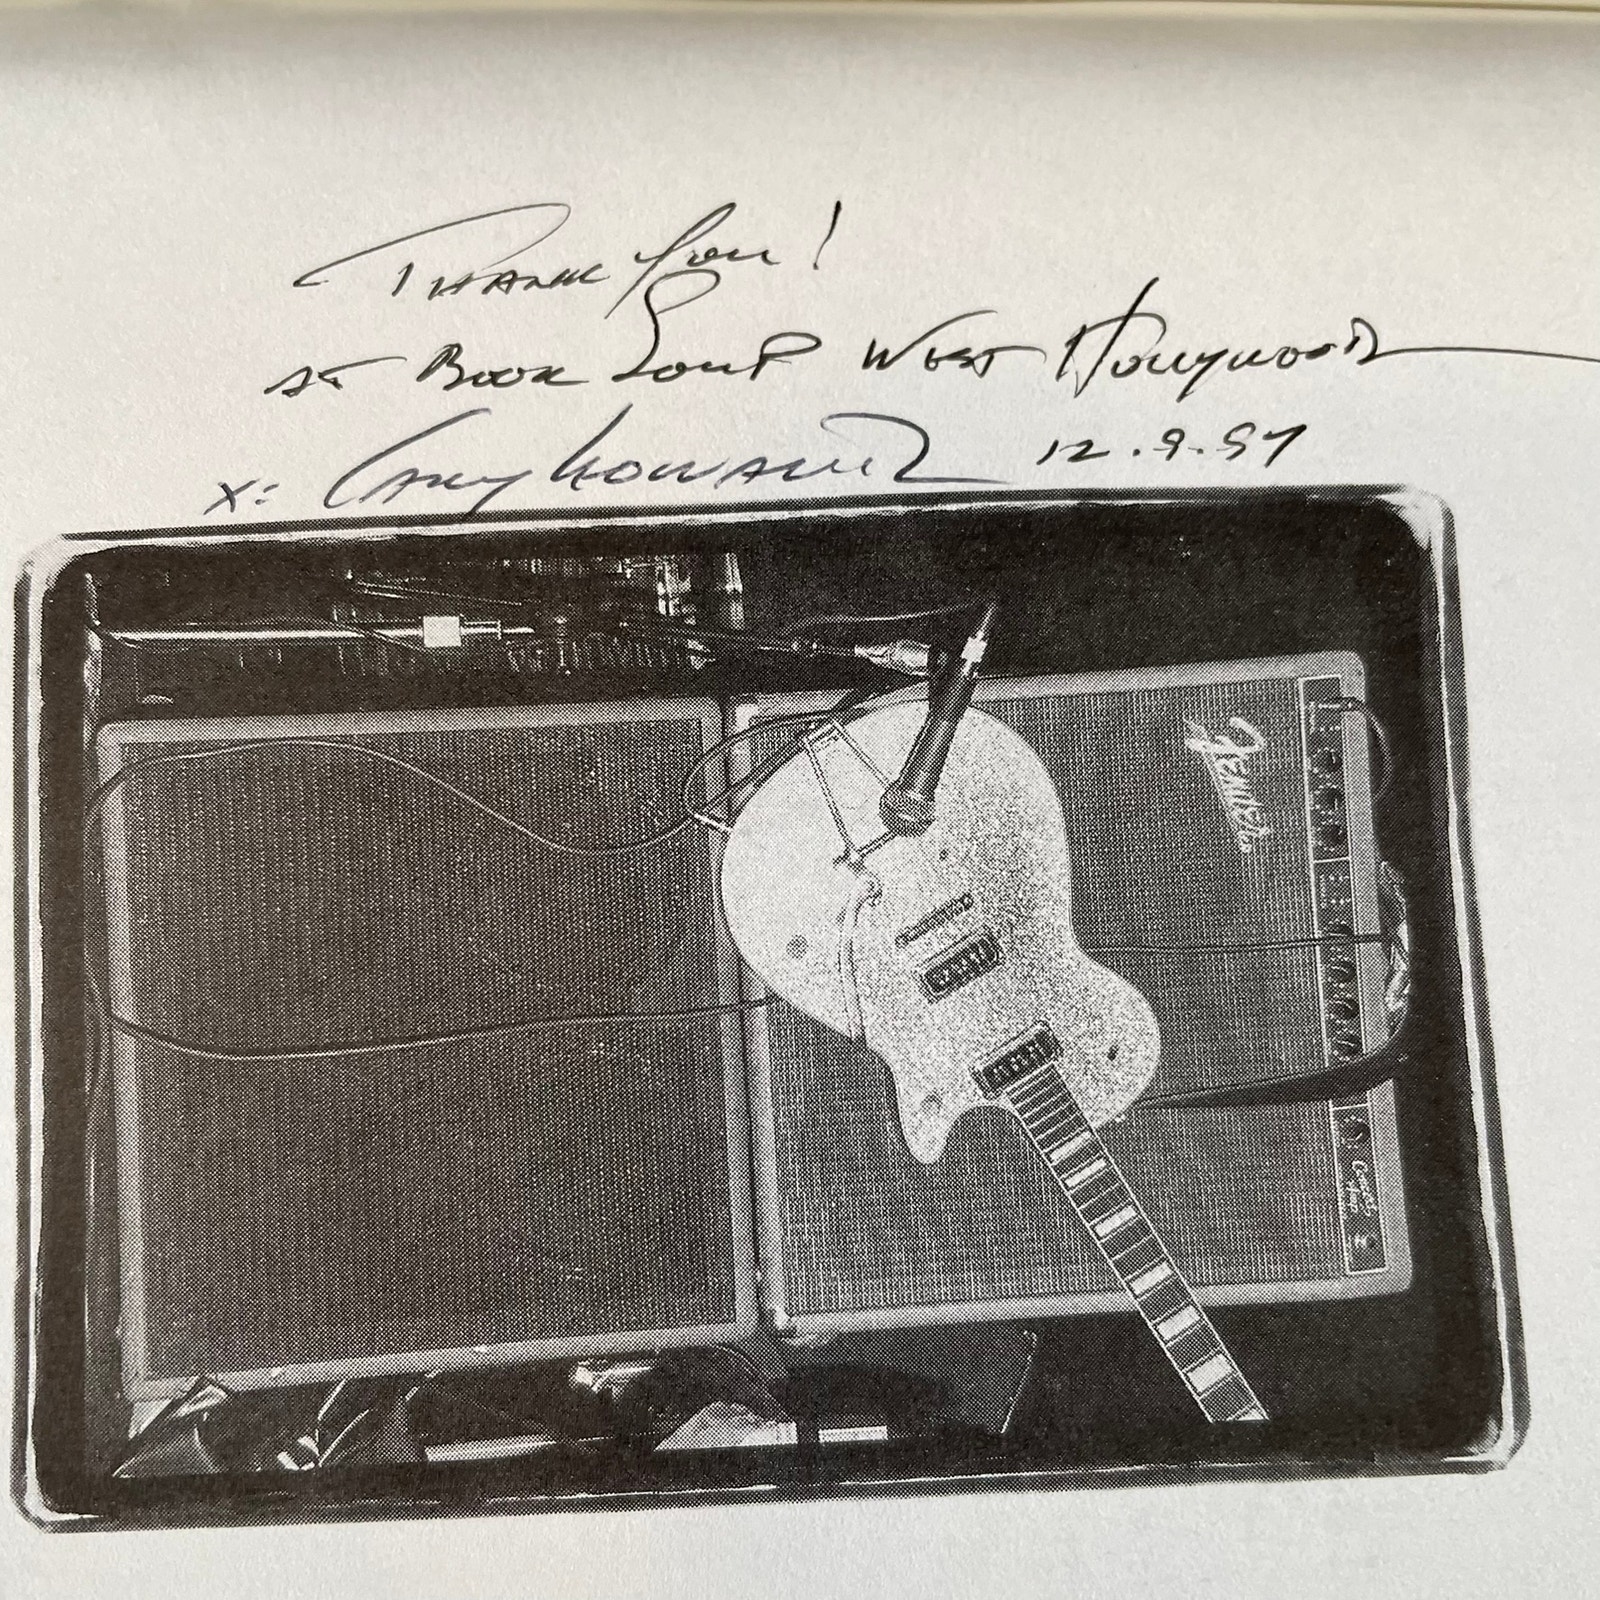 THANK You!
AT BOOK SOUP WEST HOLLYWOOD
X: 12.9.97
Fender